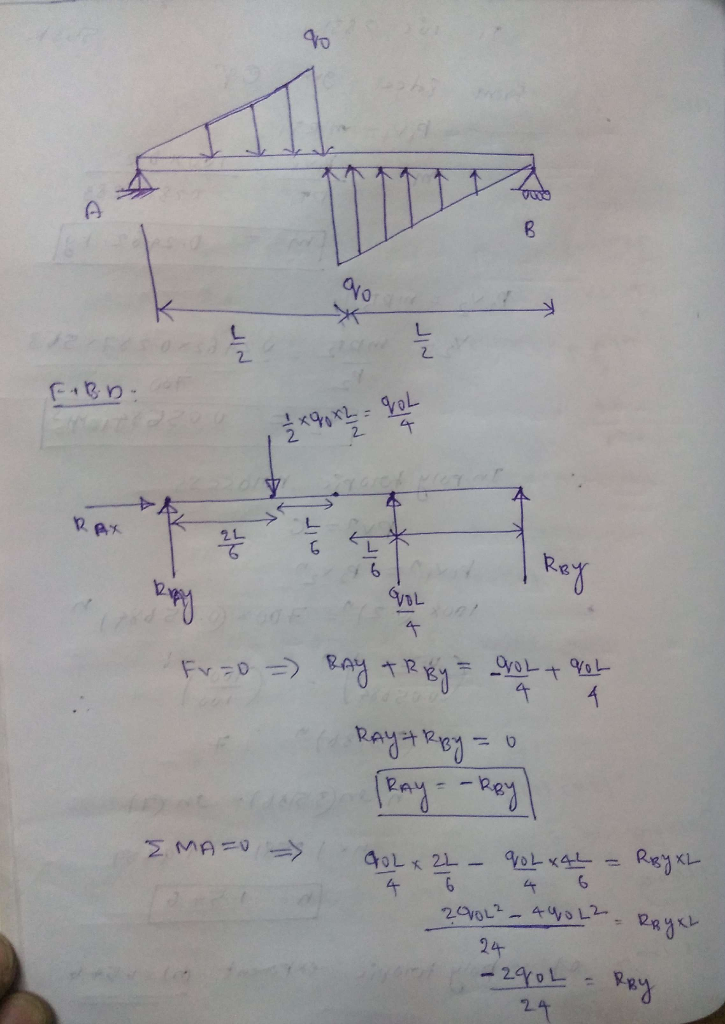 q₀
A
B
q₀
L/2
L/2
F.B.D:
1/2 × q₀ × L/2 = q₀L/4
R_Ax
2L/6
L/6
L/6
R_Ay
q₀L/4
R_By
Fv = 0 => R_Ay + R_By = -q₀L/4 + q₀L/4
R_Ay + R_By = 0
R_Ay = -R_By
Σ M_A = 0 => q₀L/4 × 2L/6 - q₀L/4 × 4L/6 = R_By × L
2q₀L² - 4q₀L²/24 = R_By × L
-2q₀L/24 = R_By